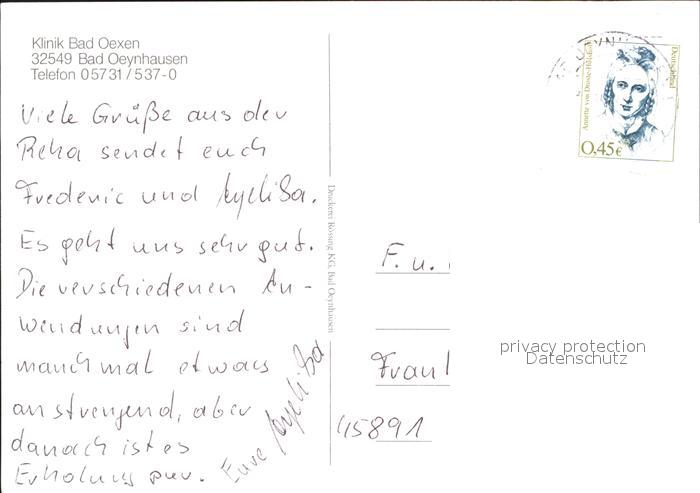 Klinik Bad Oexen
32549 Bad Oeynhausen
Telefon 05731/537-0
Viele Grüße aus der
Reha sendet euch
Frederic und
Es geht uns sehr gut.
Die verschiedenen An-
wendungen sind
manchmal etwas
anstrengend, aber
danach ist es
Erholung pur.
Eure
Druckerei Rösing KG, Bad Oeynhausen
Annette von Droste-Hülshoff
Deutschland
0,45€
F. u.
45891
privacy protection
Datenschutz